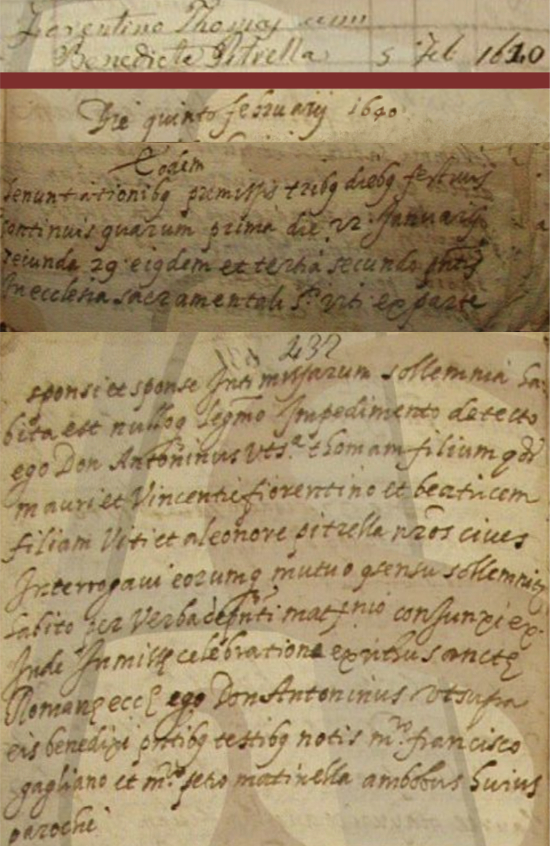 Fiorentino Thomas cum
Benedicta Pitrella 5 Feb 1640
Die quinto februarij 1640
Eodem
denuntiationibq premissis tribq diebq festiuis
continuis quarum prima die 22 Januarij
secunda 29 eiqdem et tertia secundo
In ecclesia sacramentali S.ti viti ex parte
237
sponsi et sponse Inti missarum sollemnia ha
bita est nulloq legmo Impedimento detecto
ego Don Antoninus vts.a thomam filium qd
mauri et Vincentie fiorentino et beatricem
filiam Viti et aleonore pitrella nros ciues
Interrogaui eorumq mutuo qsensu sollemnit
habito per Verba de pnti matnio consunxi ex
Inde In misse celebratione ex ritu sancte
Romane ecce ego Don Antoninus vtsupra
eis benedixi pntibq testibq notis m.ro francisco
gagliano et m.ro matinella ambobus huius
parochi